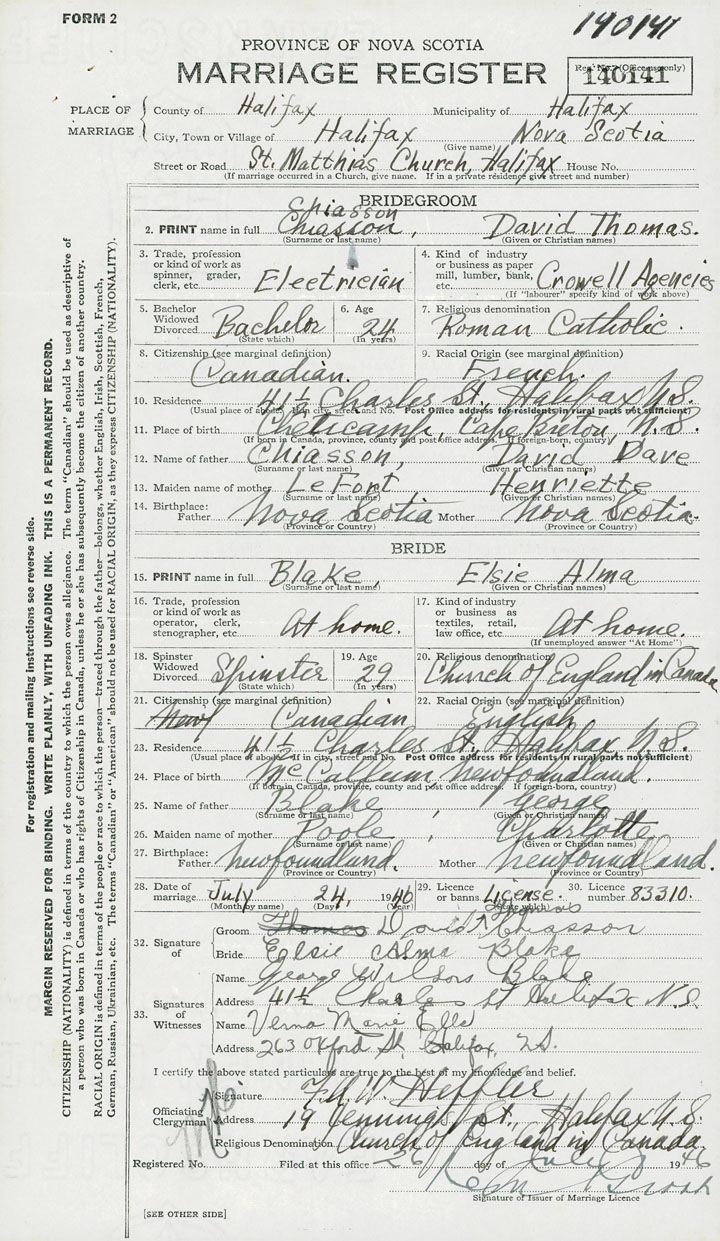 FORM 2
140141
PROVINCE OF NOVA SCOTIA
MARRIAGE REGISTER
Reg. No. (Office use only)
140141
PLACE OF MARRIAGE
County of Halifax Municipality of Halifax
City, Town or Village of Halifax Nova Scotia
(Give name)
Street or Road St. Matthias Church, Halifax House No.
(If marriage occurred in a Church, give name. If in a private residence give street and number)
BRIDEGROOM
Chiasson
2. PRINT name in full Chiasson, David Thomas.
(Surname or last name) (Given or Christian names)
3. Trade, profession or kind of work as spinner, grader, clerk, etc. Electrician
4. Kind of industry or business as paper mill, lumber, bank, etc. Crowell Agencies
(If "labourer" specify kind of work above)
5. Bachelor Widowed Divorced Bachelor
(State which)
6. Age 24
(In years)
7. Religious denomination Roman Catholic.
8. Citizenship (see marginal definition) Canadian.
9. Racial Origin (see marginal definition) French.
10. Residence 41½ Charles St., Halifax N.S.
(Usual place of abode. If in city, street and No. Post Office address for residents in rural parts not sufficient)
11. Place of birth Cheticamp, Cape Breton, N.S.
(If born in Canada, province, county and post office address. If foreign-born, country)
12. Name of father Chiasson, David Dave
(Surname or last name) (Given or Christian names)
13. Maiden name of mother LeFort Henriette
(Surname or last name) (Given or Christian names)
14. Birthplace: Father Nova Scotia Mother Nova Scotia.
(Province or Country) (Province or Country)
BRIDE
15. PRINT name in full Blake, Elsie Alma
(Surname or last name) (Given or Christian names)
16. Trade, profession or kind of work as operator, clerk, stenographer, etc. At home.
17. Kind of industry or business as textiles, retail, law office, etc. At home.
(If unemployed answer "At Home")
18. Spinster Widowed Divorced Spinster
(State which)
19. Age 29
(In years)
20. Religious denomination Church of England in Canada
21. Citizenship (see marginal definition) Newf Canadian
22. Racial Origin (see marginal definition) English
23. Residence 41½ Charles St., Halifax, N.S.
(Usual place of abode. If in city, street and No. Post Office address for residents in rural parts not sufficient)
24. Place of birth McCallum Newfoundland.
(If born in Canada, province, county and post office address. If foreign-born, country)
25. Name of father Blake George
(Surname or last name) (Given or Christian names)
26. Maiden name of mother Poole, Charlotte
(Surname or last name) (Given or Christian names)
27. Birthplace: Father Newfoundland. Mother Newfoundland.
(Province or Country) (Province or Country)
28. Date of marriage July 24, 1946
(Month by name) (Day) (Year)
29. Licence or banns License.
(State which)
30. Licence number 83310.
32. Signature of
Groom Thomas David Thomas Chiasson
Bride Elsie Alma Blake
33. Signatures of Witnesses
Name George Wilson Blake
Address 41½ Charles St Halifax N.S.
Name Verna Marie Ells
Address 263 Oxford St. Halifax, N.S.
I certify the above stated particulars are true to the best of my knowledge and belief.
Officiating Clergyman
Signature Heffler
Address 19 Jennings St., Halifax N.S.
Religious Denomination Church of England in Canada
Registered No. Filed at this office 26 day of July 1946
Signature of Issuer of Marriage Licence
[SEE OTHER SIDE]
For registration and mailing instructions see reverse side.
MARGIN RESERVED FOR BINDING. WRITE PLAINLY, WITH UNFADING INK. THIS IS A PERMANENT RECORD.
CITIZENSHIP (NATIONALITY) is defined in terms of the country to which the person owes allegiance. The term "Canadian" should be used as descriptive of
a person who was born in Canada or who has rights of Citizenship in Canada, unless he or she has subsequently become the citizen of another country.
RACIAL ORIGIN is defined in terms of the people or race to which the person—traced through the father—belongs, whether English, Irish, Scottish, French,
German, Russian, Ukrainian, etc. The terms "Canadian" or "American" should not be used for RACIAL ORIGIN, as they express CITIZENSHIP (NATIONALITY).